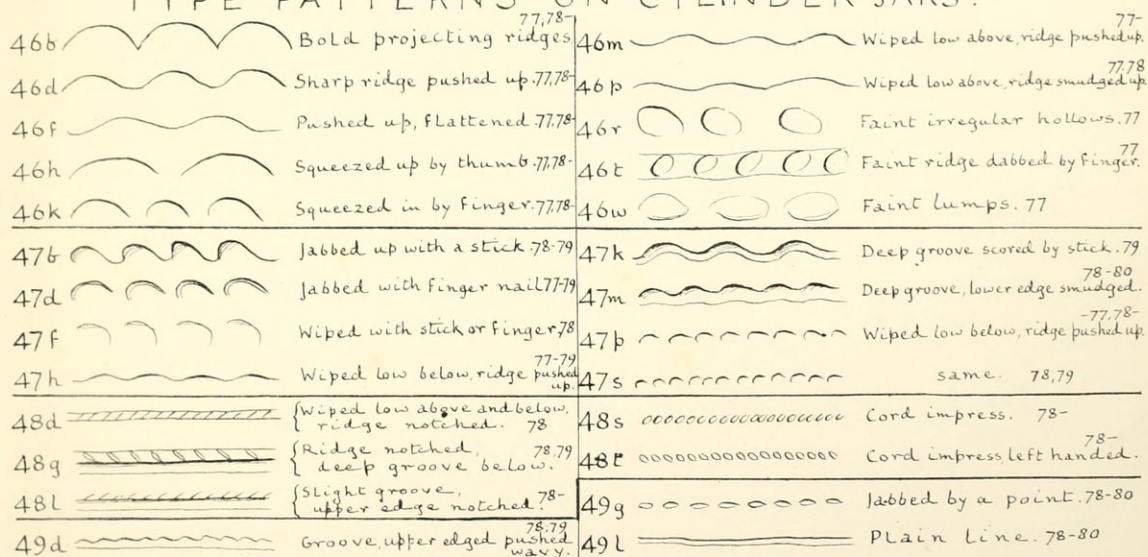 TYPE PATTERNS ON CYLINDER JARS.
46b Bold projecting ridges. 77,78-
46d Sharp ridge pushed up. 77,78-
46f Pushed up, flattened. 77,78-
46h Squeezed up by thumb. 77,78-
46k Squeezed in by finger. 77,78-
47b Jabbed up with a stick. 78-79
47d Jabbed with finger nail 77-79
47f Wiped with stick or finger, 78
47h Wiped low below, ridge pushed up. 77-79
48d {Wiped low above and below,
ridge notched. 78
48g {Ridge notched, 78,79
deep groove below.
48l {Slight groove, 78-
upper edge notched.
49d Groove, upper edged pushed wavy. 78,79
46m Wiped low above, ridge pushed up. 77-
46p Wiped low above, ridge smudged up. 77,78
46r Faint irregular hollows. 77
46t Faint ridge dabbed by finger. 77
46w Faint lumps. 77
47k Deep groove scored by stick. 79
47m Deep groove, lower edge smudged. 78-80
47p Wiped low below, ridge pushed up. -77,78-
47s same. 78,79
48s Cord impress. 78-
48t Cord impress left handed. 78-
49g Jabbed by a point. 78-80
49l Plain line. 78-80